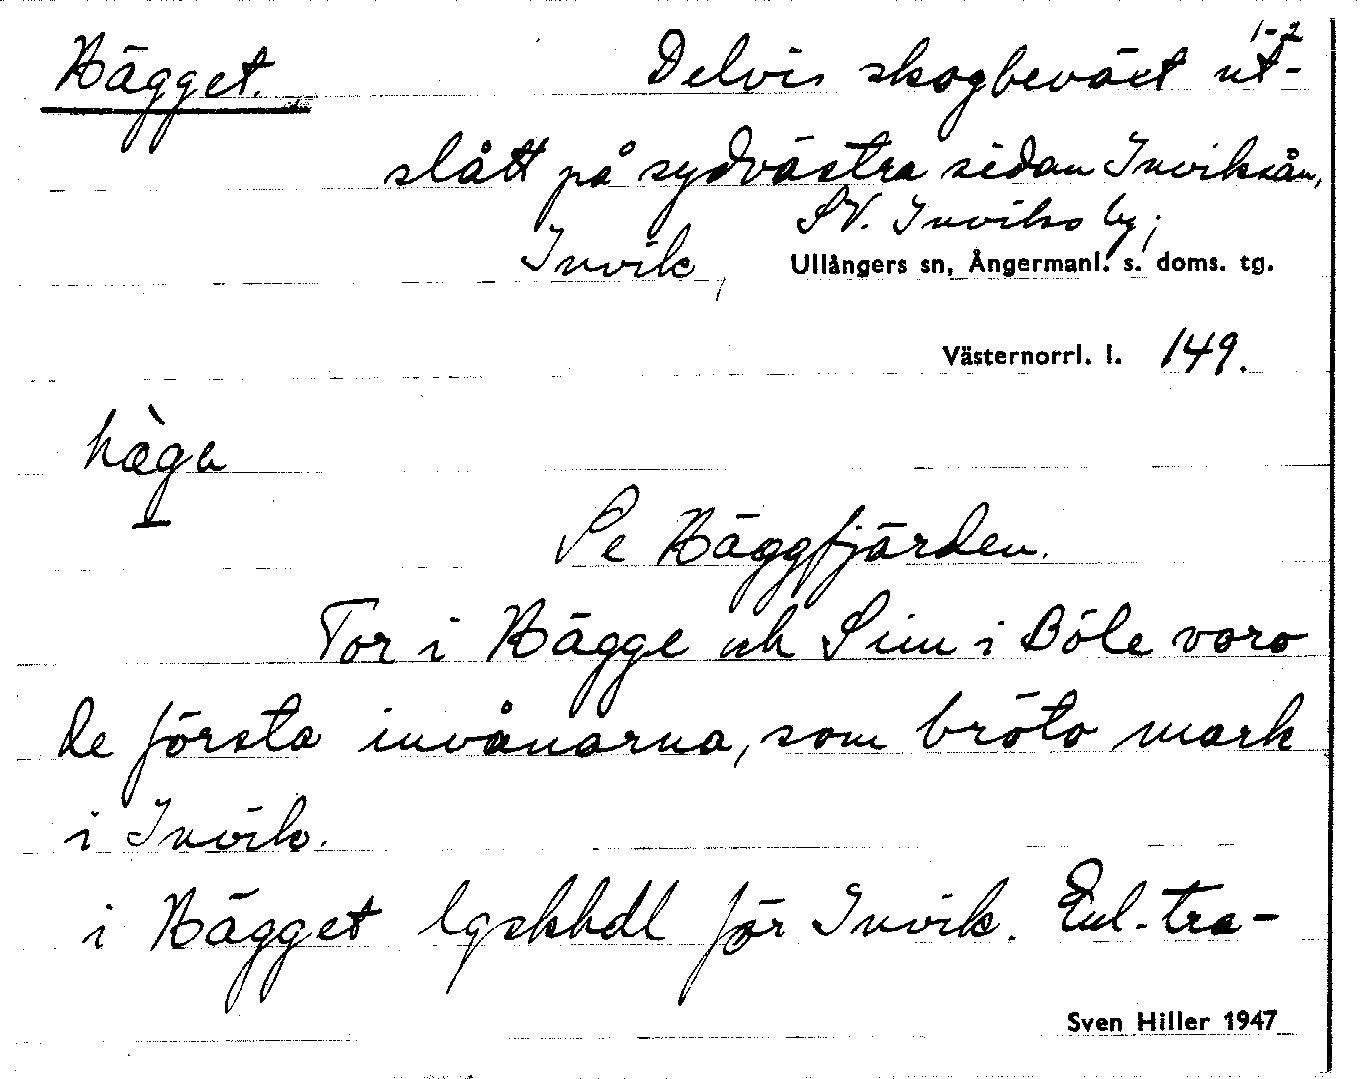 1-2
Hägget. Delvis skogbeväxt ut-
slått på sydvästra sidan Inviksån,
SV. Inviks by,
Invik, Ullångers sn, Ångermanl. s. doms. tg.
Västernorrl. l. 149.
hà̀ga
Se Häggfjärden.
Tor i Hägge och Sim i Böle voro
de första invånarna, som bröto mark
i Invik.
i Hägget lgskhdl för Invik. Enl. tra-
Sven Hiller 1947